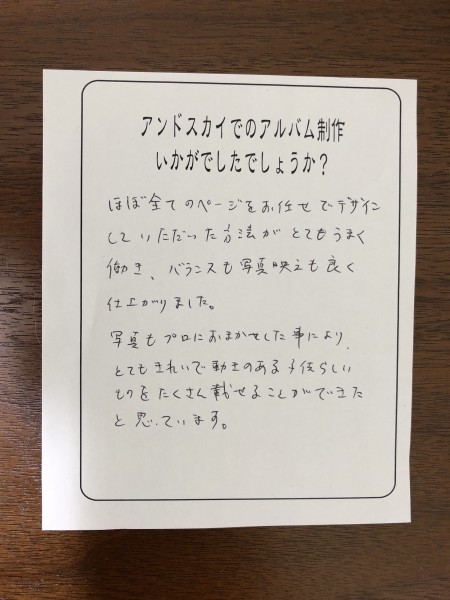 アンドスカイでのアルバム制作
いかがでしたでしょうか？
ほぼ全てのページをお任せでデザイン
していただいた方法がとてもうまく
働き、バランスも写真映えも良く
仕上がりました。
写真もプロにおまかせした事により、
とてもきれいで動きのある子供らしい
ものをたくさん載せることができた
と思っています。